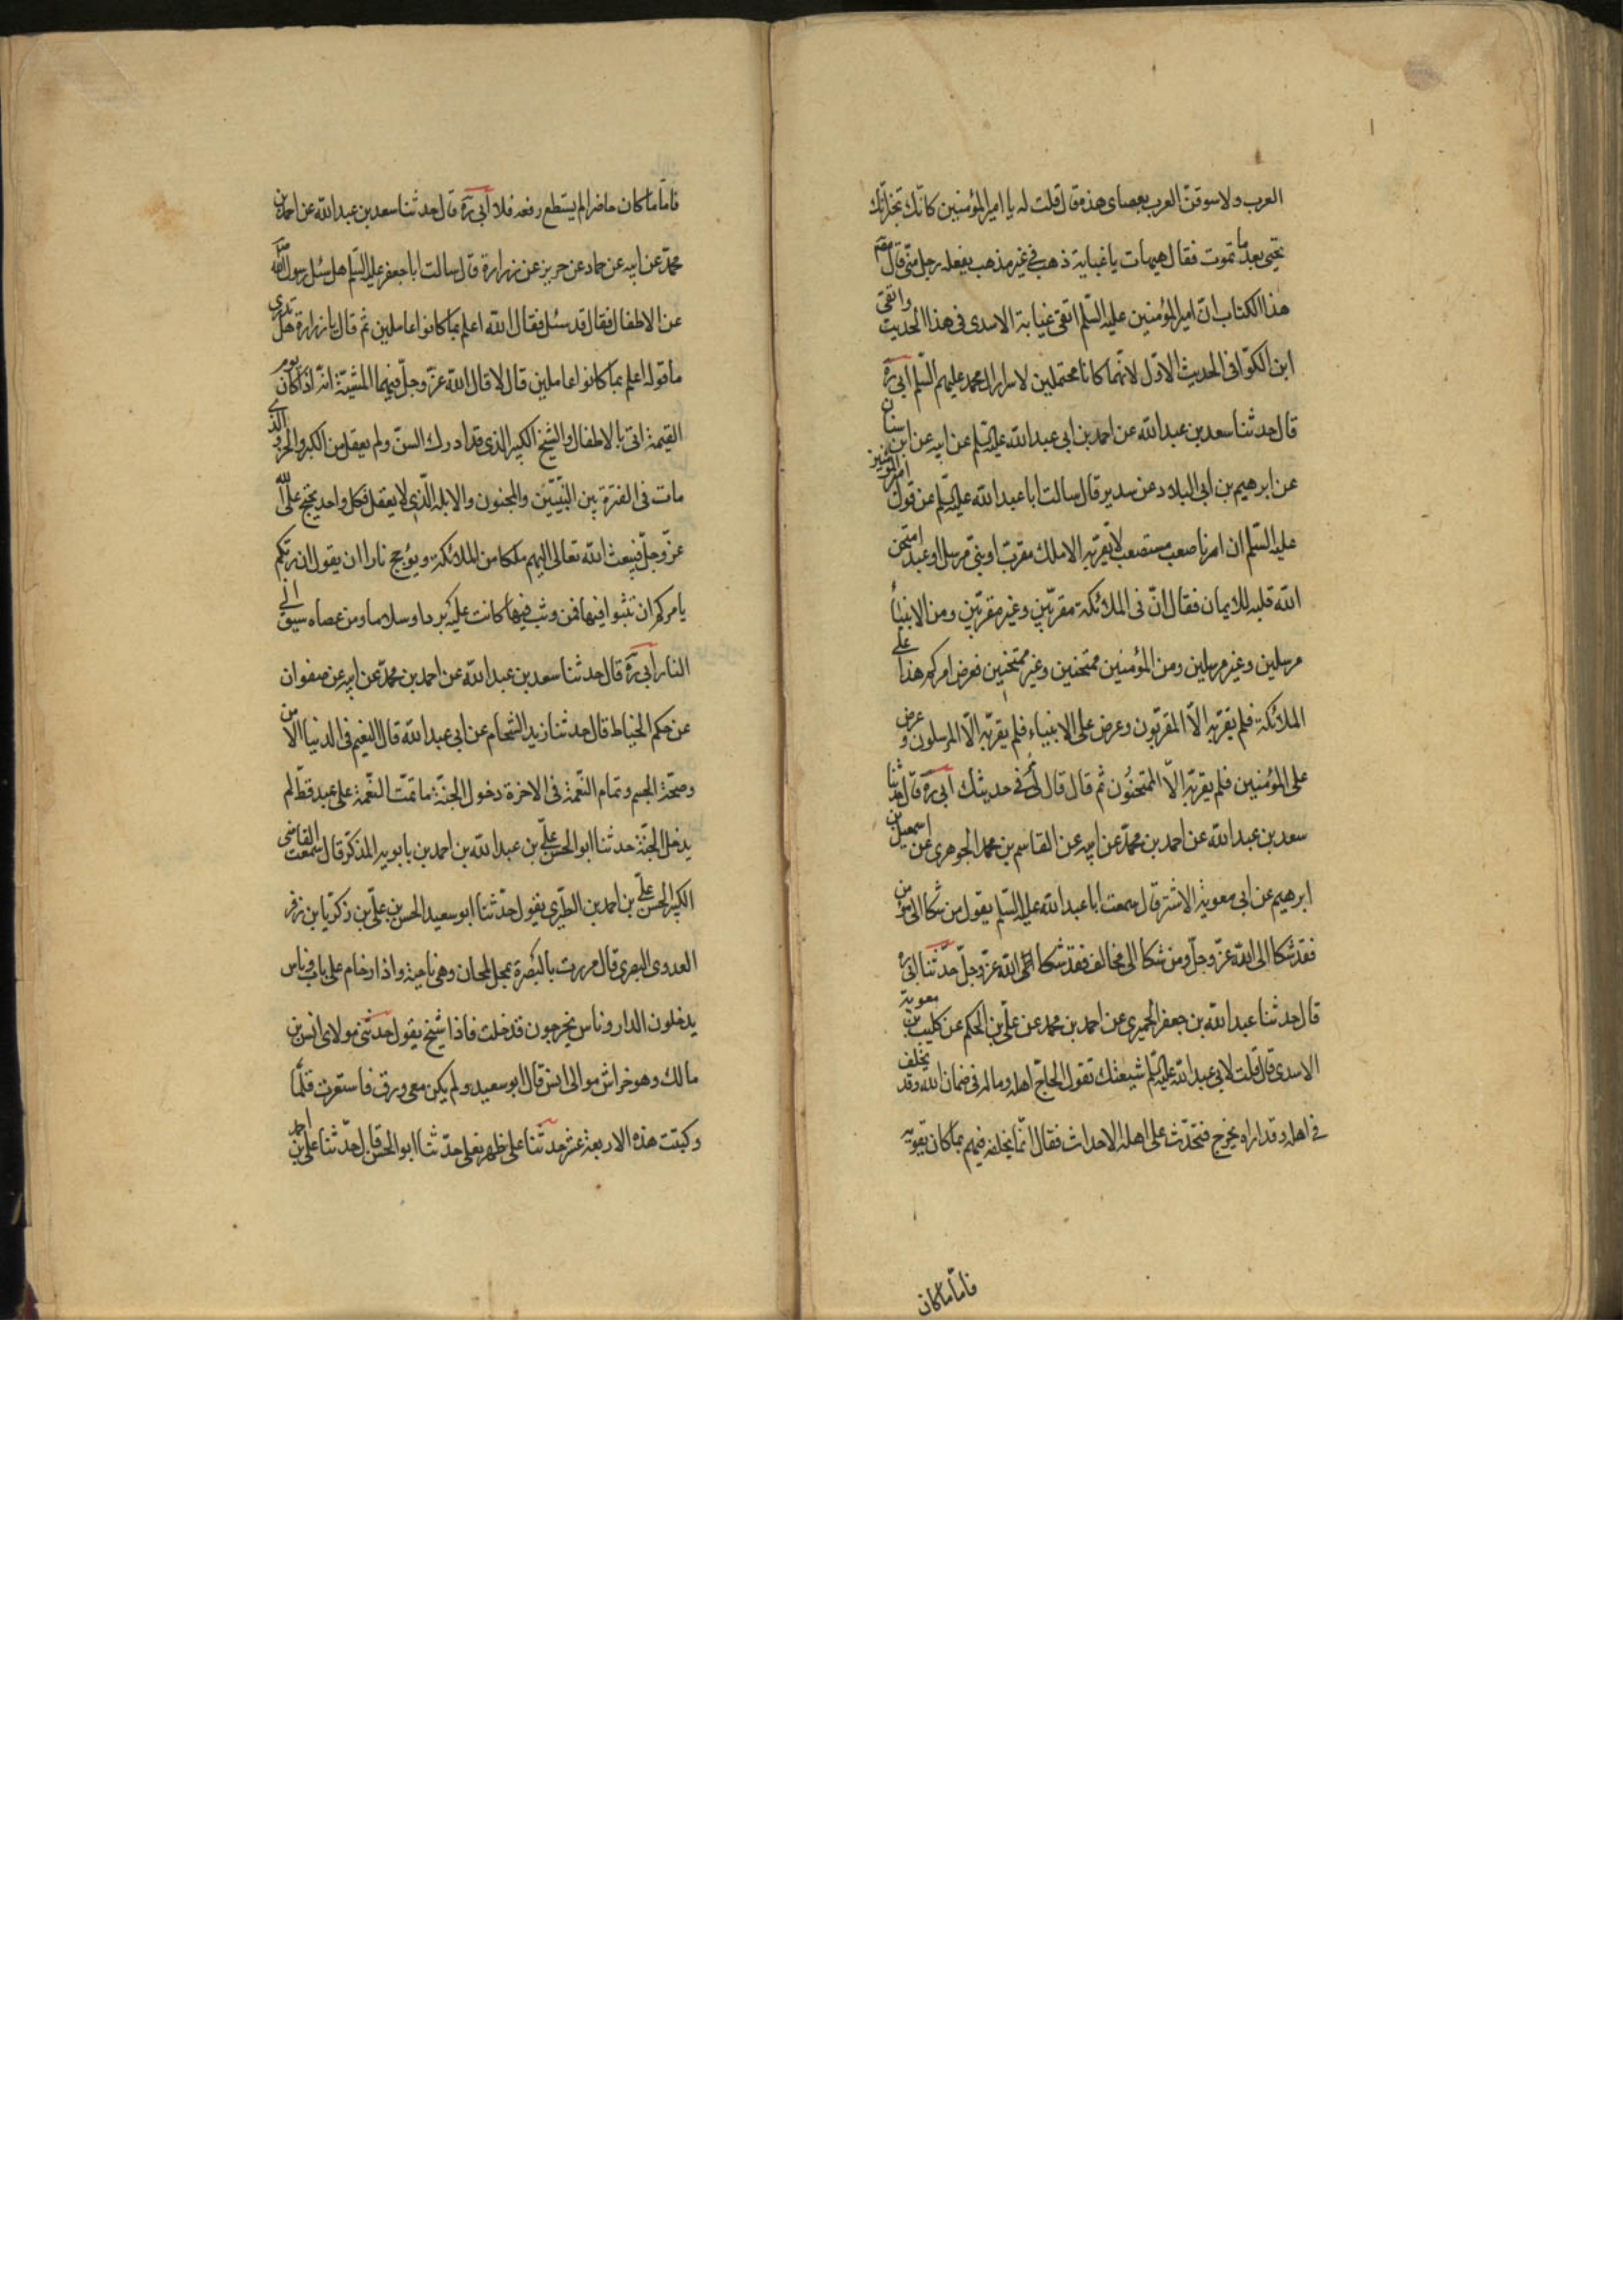 العرب ولاسوقنّ العرب بعصاى هذه قال قلت له يا امير المؤمنين كانّك تخبر انّك
تحيى بعد ما تموت فقال هيهات يا عباية ذهبت في غير مذهب يفعله رجل منّى قال مصنّف
هذا الكتاب انّ امير المؤمنين عليه السّلم اتقى عباية الاسدى فى هذا الحديث واتقى
ابن الكوّا فى الحديث الاوّل لانّهما كانا محتملين لاسرار ال محمد عليهم السّلم ابى ره
قال حدثنا سعد بن عبد الله عن احمد بن ابى عبد الله عليه السّلم عن ابيه عن ابن سنان
عن ابرهيم بن ابى البلاد عن سدير قال سالت ابا عبد الله عليه السّلم عن قول امير المؤمنين
عليه السّلم ان امرنا صعب مستصعب لا يقرّ به الا ملك مقرّب او نبىّ مرسل او عبد امتحن
الله قلبه للايمان فقال انّ فى الملائكة مقرّبين وغير مقرّبين ومن الانبياء
مرسلين وغير مرسلين ومن المؤمنين ممتحنين وغير ممتحنين فعرض امركم هذا على
الملائكة فلم يقرّ به الاّ المقربّون وعرض على الانبياء فلم يقرّ به الاّ المرسلون وعرض
على المؤمنين فلم يقرّ به الاّ الممتحنُون ثم قال قال لى مُرّ فى حديثك ابى ره قال حدثنا
سعد بن عبد الله عن احمد بن محمّد عن ابيه عن القاسم بن محمد الجوهرى عن اسمعيل بن
ابرهيم عن ابى معوية الاشتر قال سمعت ابا عبد الله عليه السّلم يقول من شكا الى مؤمن
فقد شكا الى الله عزّ وجلّ ومن شكا الى مخالف فقد شكا الله عزّ وجلّ حدّثنا ابى ره
قال حدثنا عبد الله بن جعفر الحميرى عن احمد بن محمد عن علىّ بن الحكم عن كليب بن معوية
الاسدى قال قلت لابى عبد الله عليه السّلم شيعتك تقول الحاجّ اهله وماله فى ضمان الله وقد يخلف
فى اهله وقد اراه يخرج فتحدّث على اهله الاحداث فقال انّما يخلفه فيهم بما كان يقوم به
فامّا ما كان
فامّا ما كان حاضرا لم يستطع دفعه فلا ابى ره قال حدثنا سعد بن عبد الله عن احمد بن
محمّد عن ابيه عن حماد عن حريز عن زرارة قال سالت ابا جعفر عليه السّلم هل سُئل رسول الله
عن الاطفال فقال قد سئل فقال الله اعلم بما كانوا عاملين ثم قال يا زرارة هل تدرى
ما قوله اعلم بما كانوا عاملين قال لا قال الله عزّ وجلّ فيهما المشيّة انّه اذا كان يوم
القيمة اتى بالاطفال والشيخ الكبير الذى قد ادرك السنّ ولم يعقل من الكبر والخرف والذى
مات فى الفترة بين النبّيين والمجنون والابله الّذى لا يعقل فكل واحد يحتج على الله
عزّ وجلّ فيبعث الله تعالى اليهم ملكا من الملائكة ويؤجج نارا ان يقول ان ربّكم
يامركم ان تثبوا فيها فمن وثب فيها كانت عليه بردا وسلاما ومن عصاه سيق الى
النار ابى ره قال حدثنا سعد بن عبد الله عن احمد بن محمّد عن ابيه عن صفوان
عن حكم الخياط قال حدثنا زيد الشحام عن ابى عبد الله قال النعيم فى الدنيا الامن
وصحّة الجسم وتمام النّعمة فى الاخرة دخول الجنّة ما تمّت النعّمة على عبد قطّ لم
يدخل الجنّة حدثنا ابو الحسن علىّ بن عبد الله بن احمد بن بابويه المذكّر قال سمعت القاضى
الكبير الحسن علىّ بن احمد بن الطبرى يقول حدّثنا ابو سعيد الحسن بن علىّ بن زكرّيا بن زفر
العدوى البصرى قال مررت بالبُصرة بمحل لمحان وهى ناحية واذا زحام على باب وناس
يدخلون الدار وناس يخرجون فدخلت فاذا شيخ يقول حدثنى مولاى انس بن
مالك وهو خراش موالى انس قال ابو سعيد ولم يكن معى ورق فاستعرت قلمًا
وكتبت هذه الاربعة عشر حدثنا على ظهر نعلى حدّثنا ابو الحسن قال حدّثنا على بن احمد